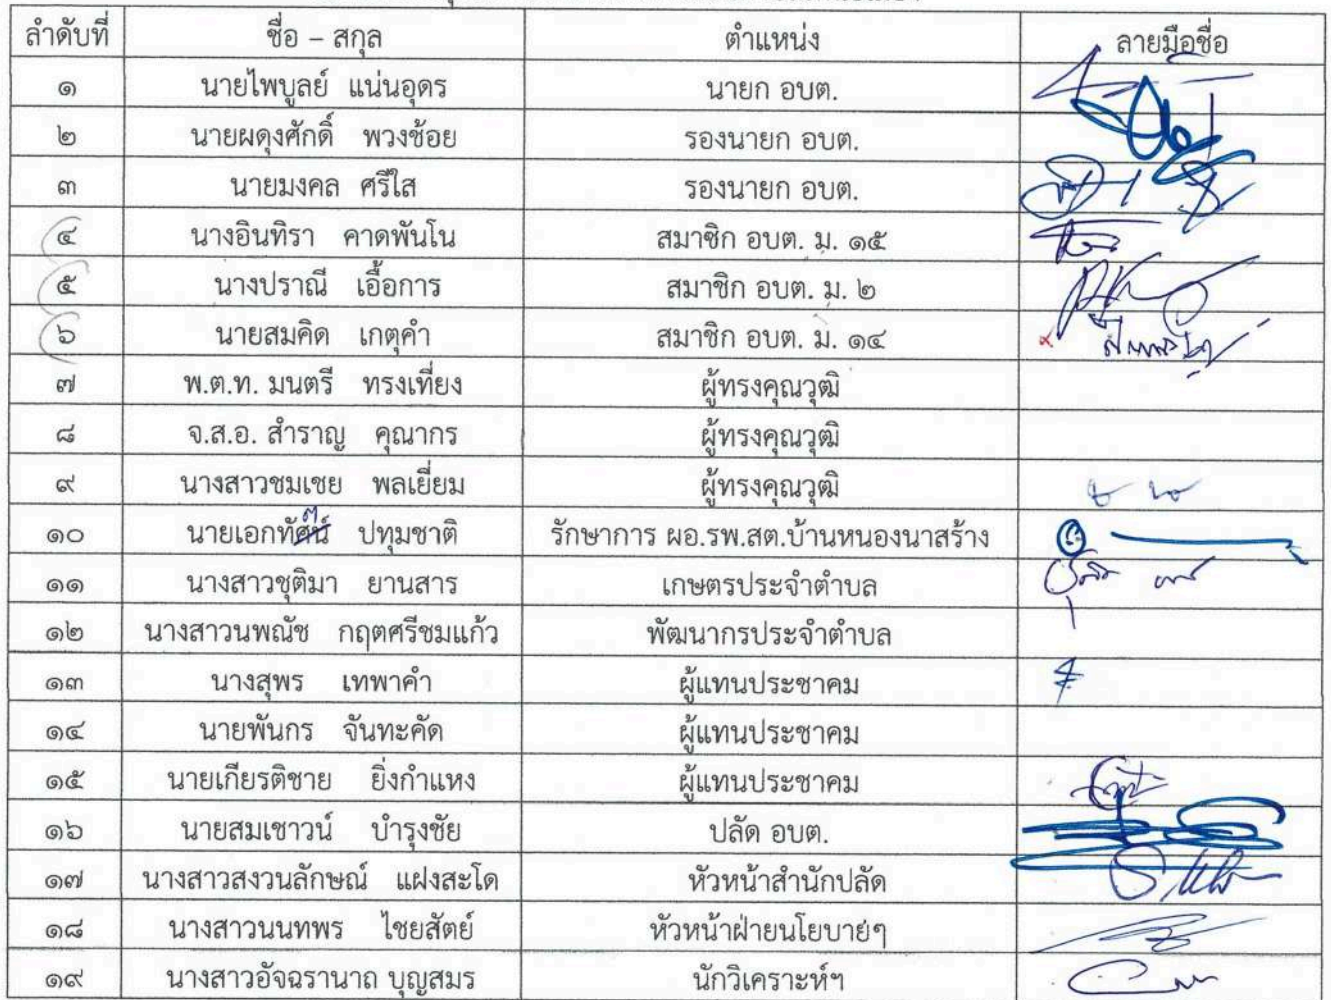 ลำดับที่ ชื่อ – สกุล ตำแหน่ง ลายมือชื่อ
๑ นายไพบูลย์ แน่นอุดร นายก อบต.
๒ นายผดุงศักดิ์ พวงช้อย รองนายก อบต.
๓ นายมงคล ศรีใส รองนายก อบต.
๔ นางอินทิรา คาดพันโน สมาชิก อบต. ม. ๑๕
๕ นางปราณี เอื้อการ สมาชิก อบต. ม. ๒
๖ นายสมคิด เกตุคำ สมาชิก อบต. ม. ๑๔
๗ พ.ต.ท. มนตรี ทรงเที่ยง ผู้ทรงคุณวุฒิ
๘ จ.ส.อ. สำราญ คุณากร ผู้ทรงคุณวุฒิ
๙ นางสาวชมเชย พลเยี่ยม ผู้ทรงคุณวุฒิ
๑๐ นายเอกทัศน์ ปทุมชาติ รักษาการ ผอ.รพ.สต.บ้านหนองนาสร้าง
๑๑ นางสาวชุติมา ยานสาร เกษตรประจำตำบล
๑๒ นางสาวนพณัช กฤตศรีชมแก้ว พัฒนากรประจำตำบล
๑๓ นางสุพร เทพาคำ ผู้แทนประชาคม
๑๔ นายพันกร จันทะคัด ผู้แทนประชาคม
๑๕ นายเกียรติชาย ยิ่งกำแหง ผู้แทนประชาคม
๑๖ นายสมเชาวน์ บำรุงชัย ปลัด อบต.
๑๗ นางสาวสงวนลักษณ์ แฝงสะโด หัวหน้าสำนักปลัด
๑๘ นางสาวนนทพร ไชยสัตย์ หัวหน้าฝ่ายนโยบายๆ
๑๙ นางสาวอัจฉรานาถ บุญสมร นักวิเคราะห์ฯ